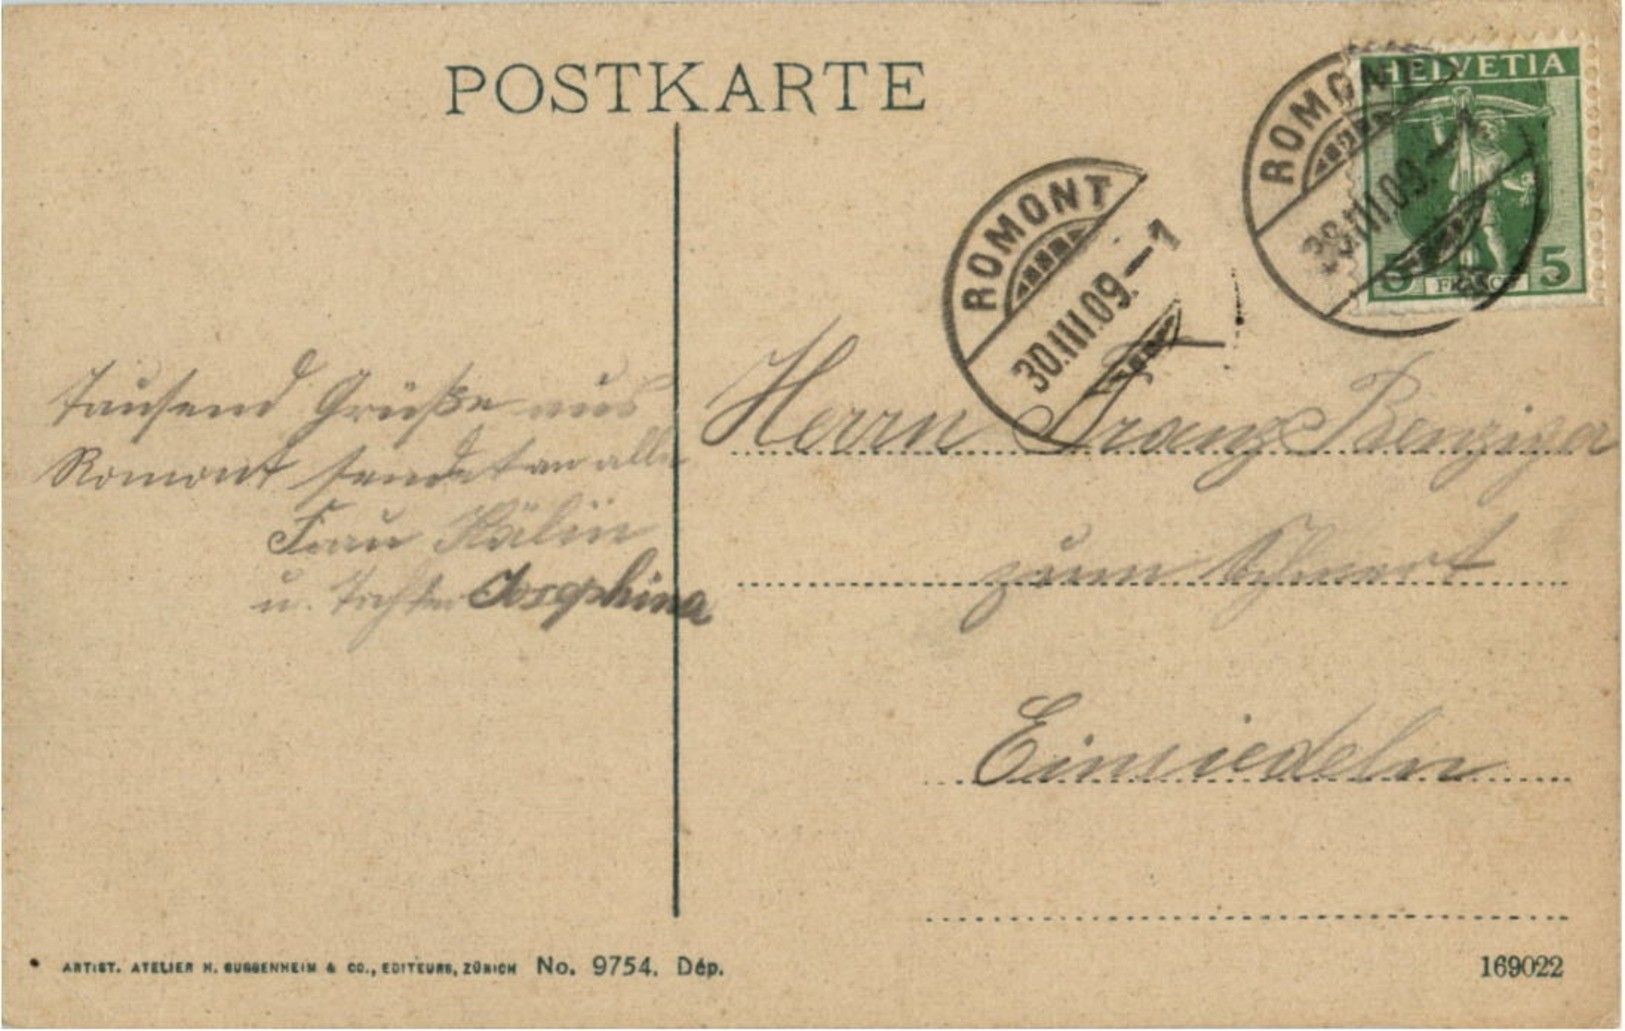 POSTKARTE
HELVETIA
5 FRANCO 5
ROMONT
30.III.09.–1
ROMONT
30.III.09.–1
Tausend Grüße aus
Romont sendet an alle
Frau Kälin
u. Tochter Josephina
Herrn Franz Benziger
zum Schwert
Einsiedeln
ARTIST. ATELIER H. GUGGENHEIM & CO., EDITEURS, ZÜRICH No. 9754. Dép.
169022